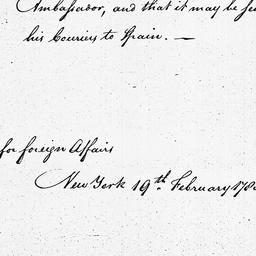 Ambassador, and that it may be
his Couriers to Spain. —
for foreign Affairs
New York 19th. February